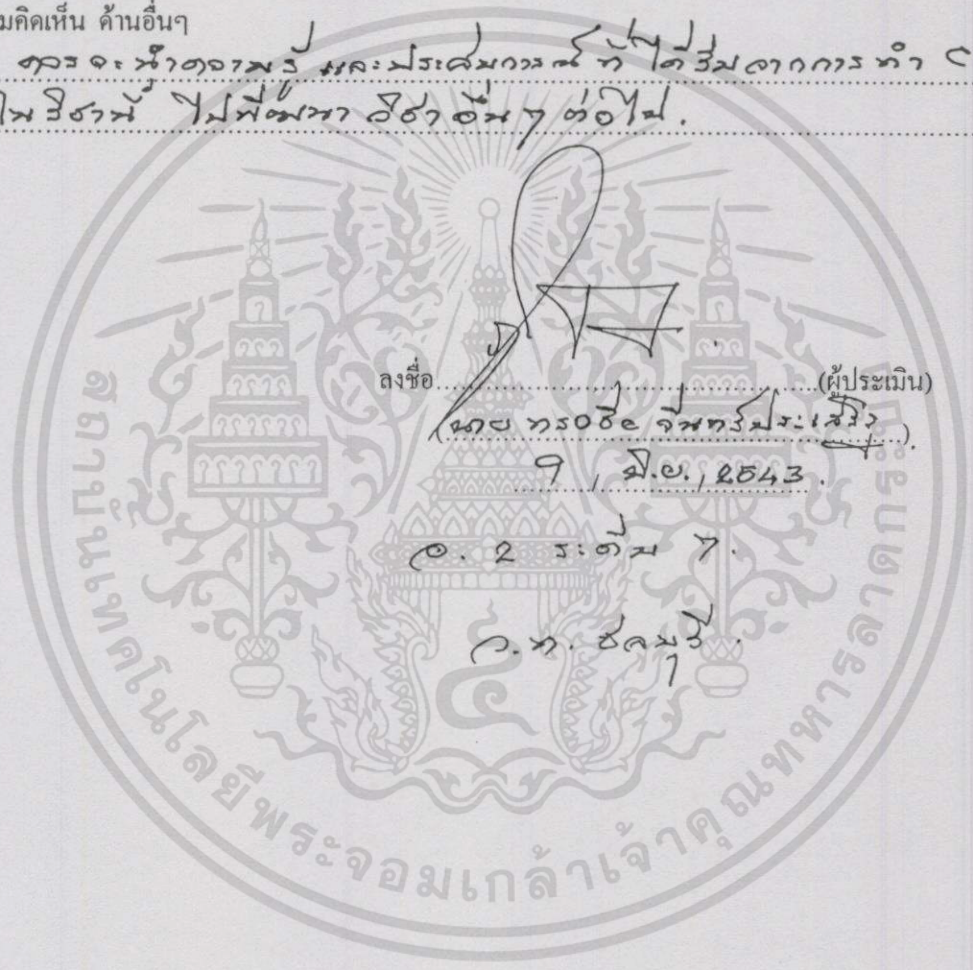 มคิดเห็น ด้านอื่นๆ
ควรจะนำความรู้ และประสบการณ์ ที่ได้รับจากการทำ C
ในวิชานี้ ไปพัฒนา วิชาอื่น ๆ ต่อไป.
ลงชื่อ (ผู้ประเมิน)
(นาย จันทร์ประเสริฐ).
9 / มิ.ย. / 2543.
อ. 2 ระดับ 7.
ว.ท. ชลบุรี.
สถาบันเทคโนโลยีพระจอมเกล้าเจ้าคุณทหารลาดกระบัง